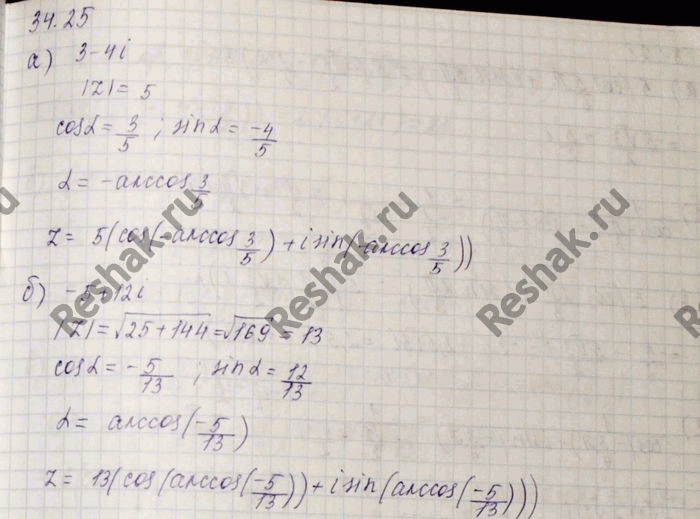 34.25
а) 3-4i
|z| = 5
cosα = 3/5 ; sinα = -4/5
α = -arccos 3/5
z = 5(cos(-arccos 3/5) + i sin(-arccos 3/5))
б) -5+12i
|z| = √25+144 = √169 = 13
cosα = -5/13 ; sinα = 12/13
α = arccos(-5/13)
z = 13(cos(arccos(-5/13)) + i sin(arccos(-5/13)))
Reshak.ru
Reshak.ru
Reshak.ru